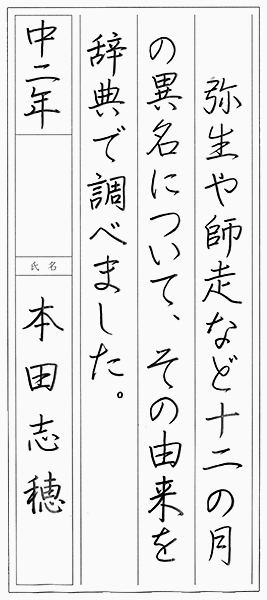 弥生や師走など十二の月
の異名について、その由来を
辞典で調べました。
中二年
氏名
本田志穂